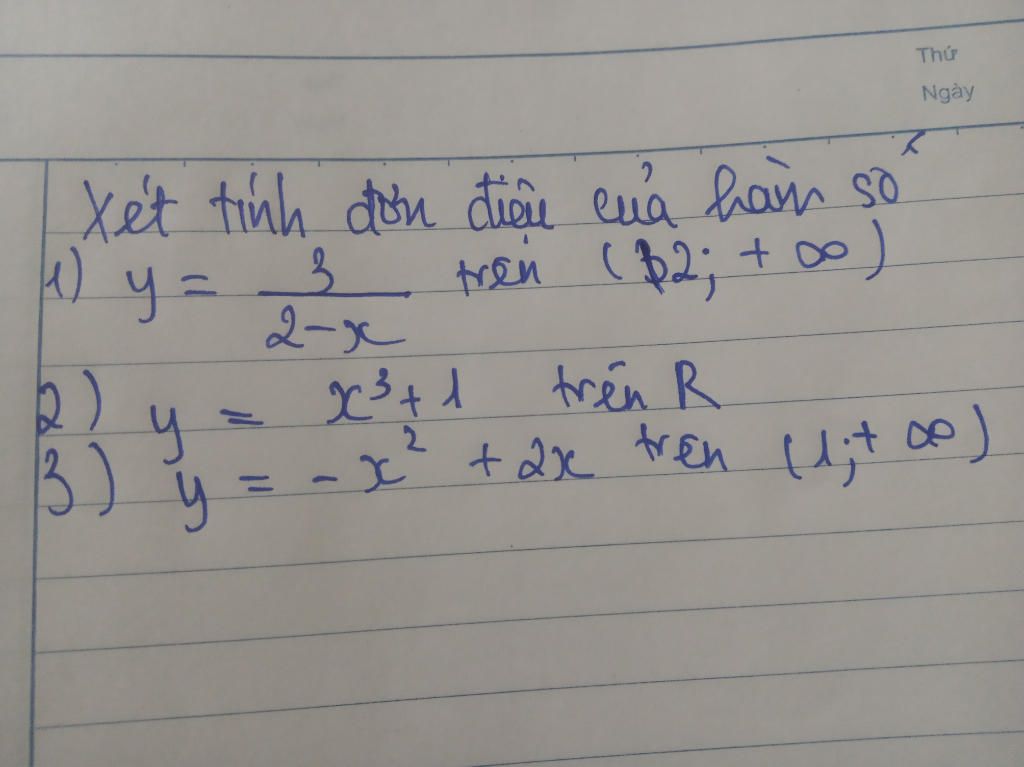 Thứ
Ngày
Xét tính đơn điệu của hàm số
1) y = 3/(2-x) trên (2; + ∞)
2) y = x³ + 1 trên R
3) y = -x² + 2x trên (1; + ∞)